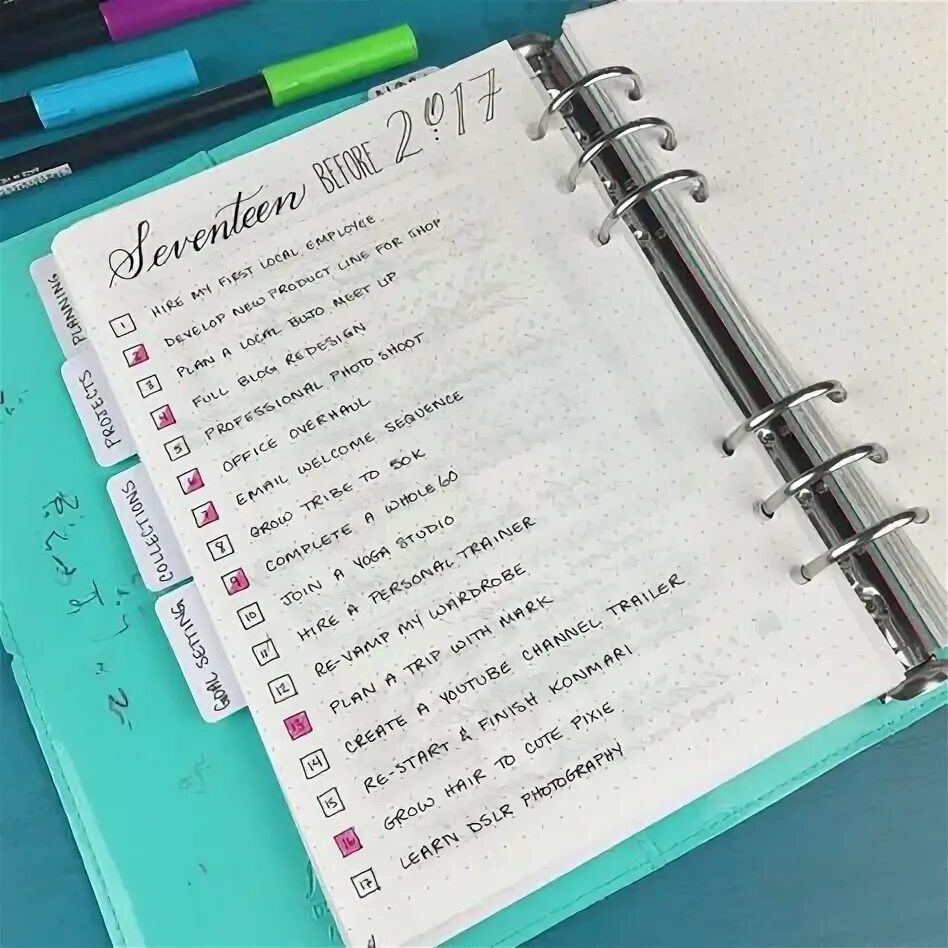 Seventeen BEFORE 2017
1 HIRE MY FIRST LOCAL EMPLOYEE
2 DEVELOP NEW PRODUCT LINE FOR SHOP
3 PLAN A LOCAL BUJO MEET UP
4 FULL BLOG REDESIGN
5 PROFESSIONAL PHOTO SHOOT
6 OFFICE OVERHAUL
7 EMAIL WELCOME SEQUENCE
8 GROW TRIBE TO 50K
9 COMPLETE A WHOLE 60
10 JOIN A YOGA STUDIO
11 HIRE A PERSONAL TRAINER
12 RE-VAMP MY WARDROBE
13 PLAN A TRIP WITH MARK
14 CREATE A YOUTUBE CHANNEL TRAILER
15 RE-START & FINISH KONMARI
16 GROW HAIR TO CUTE PIXIE
17 LEARN DSLR PHOTOGRAPHY
PLANNING
PROJECTS
COLLECTIONS
GOAL SETTING